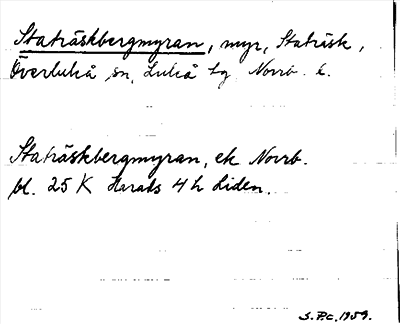 Staträskbergmyran, myr, Staträsk,
Överluleå sn, Luleå tg Norrb. l.
Staträskbergmyran, ek Norrb.
bl. 25 K Harads 4 h Liden.
S.P.c. 1959.